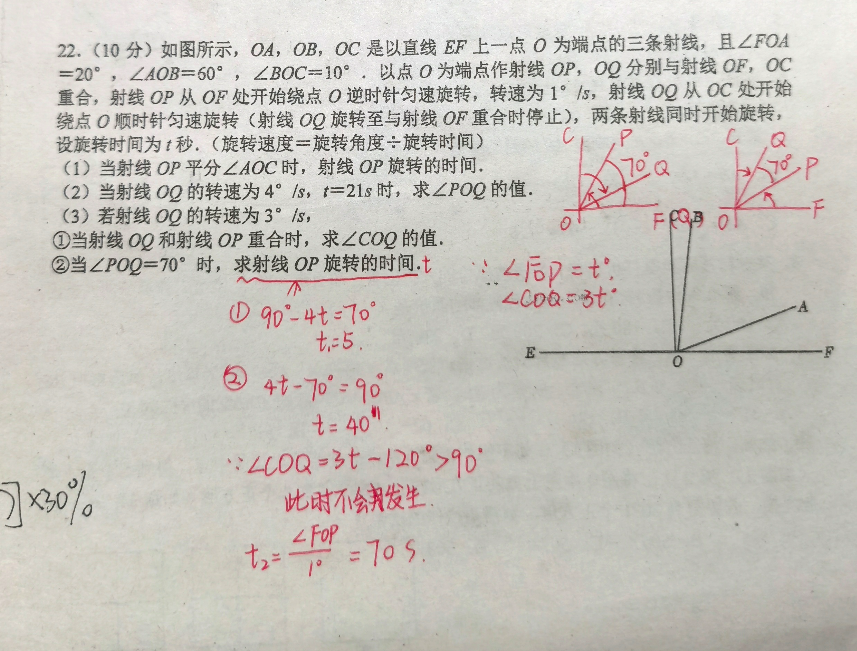 22.（10 分）如图所示，OA，OB，OC 是以直线 EF 上一点 O 为端点的三条射线，且∠FOA
=20°，∠AOB=60°，∠BOC=10°．以点 O 为端点作射线 OP，OQ 分别与射线 OF，OC
重合，射线 OP 从 OF 处开始绕点 O 逆时针匀速旋转，转速为 1°/s，射线 OQ 从 OC 处开始
绕点 O 顺时针匀速旋转（射线 OQ 旋转至与射线 OF 重合时停止），两条射线同时开始旋转，
设旋转时间为 t 秒.（旋转速度=旋转角度÷旋转时间）
（1）当射线 OP 平分∠AOC 时，射线 OP 旋转的时间.
（2）当射线 OQ 的转速为 4°/s，t=21s 时，求∠POQ 的值.
（3）若射线 OQ 的转速为 3°/s，
①当射线 OQ 和射线 OP 重合时，求∠COQ 的值.
②当∠POQ=70° 时，求射线 OP 旋转的时间. t
C P 70° Q O F
C Q 70° P O F
C(Q) B
A
E O F
∵ ∠FOP = t°.
∠COQ = 3t°.
① 90°-4t=70°
t₁=5.
② 4t-70°=90°
t=40
∵∠COQ=3t=120°>90°
此时不会发生.
t₂= ∠FOP/1° =70 s.
]×30%